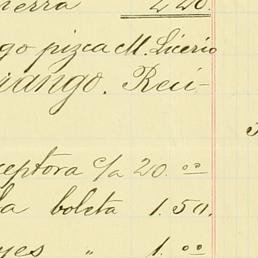 nerra 220.
go pizca M. Licerio
rango. Reci-
ceptora c/a 20.00
la boleta 1.50.
yes " 1.00